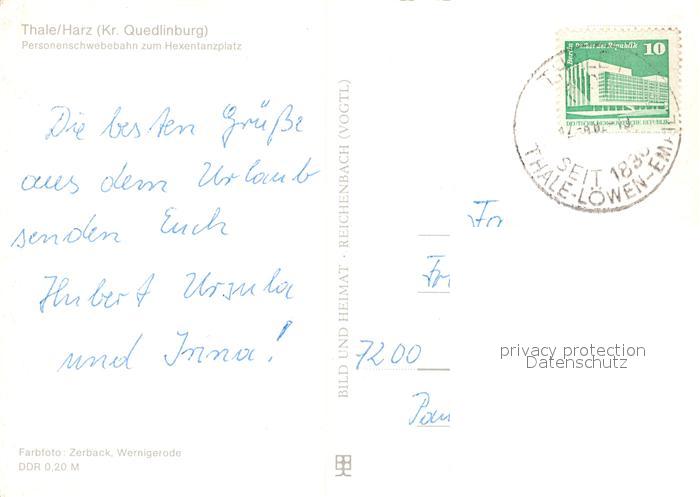 Thale/Harz (Kr. Quedlinburg)
Personenschwebebahn zum Hexentanzplatz
Die besten Grüße
aus dem Urlaub
senden Euch
Hubert Ursula
und Irina!
Farbfoto: Zerback, Wernigerode
DDR 0,20 M
BILD UND HEIMAT · REICHENBACH (VOGTL)
Berlin Palast der Republik
10
DEUTSCHE DEMOKRATISCHE REPUBLIK
SEIT 183
THALE-LÖWEN-EMAIL
7200
privacy protection
Datenschutz